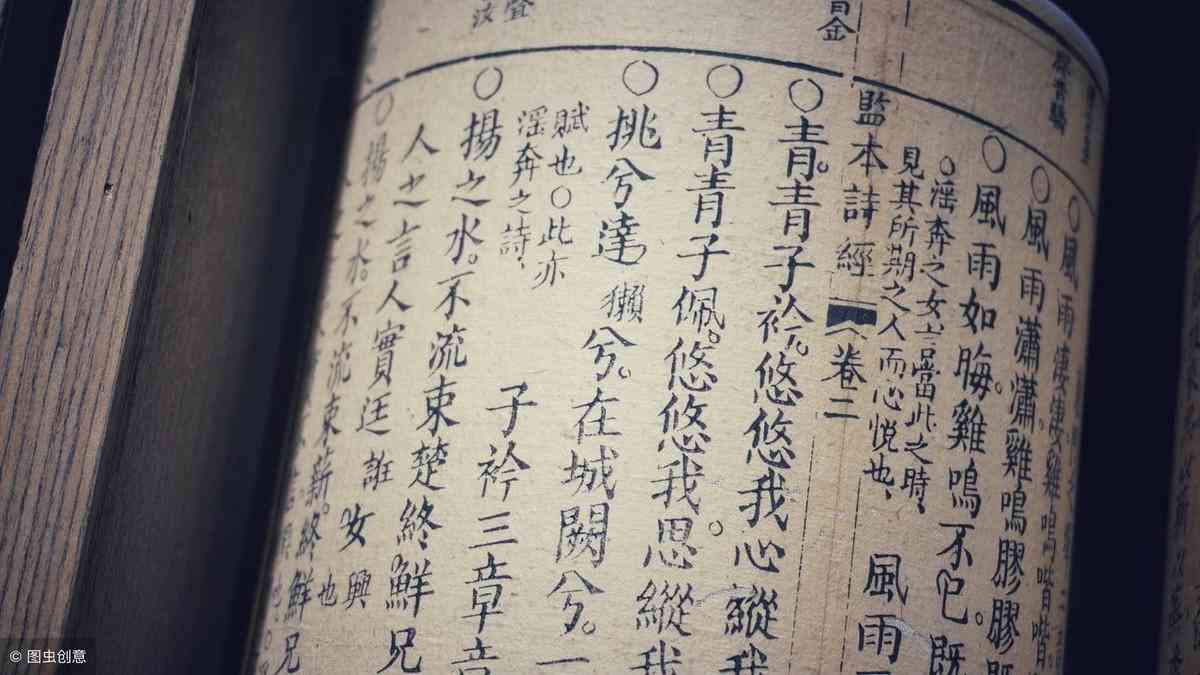 ○風雨淒淒雞鳴喈喈
○風雨瀟瀟雞鳴膠膠既
○風雨如晦。雞鳴不已。既
○淫奔之女言當此之時、
見其所期之人而心悅也、
風雨
監本詩經 卷二
音金
○青。青子衿。悠悠我心縱我
○青青子佩。悠悠我思。縱我
○挑兮達獺兮。在城闕兮。一
賦也○此亦
淫奔之詩、
子衿三章章
○揚之水。不流束楚終鮮兄
人之言人實迋誑女興也
○揚之水。不流束薪。終鮮兄
© 图虫创意